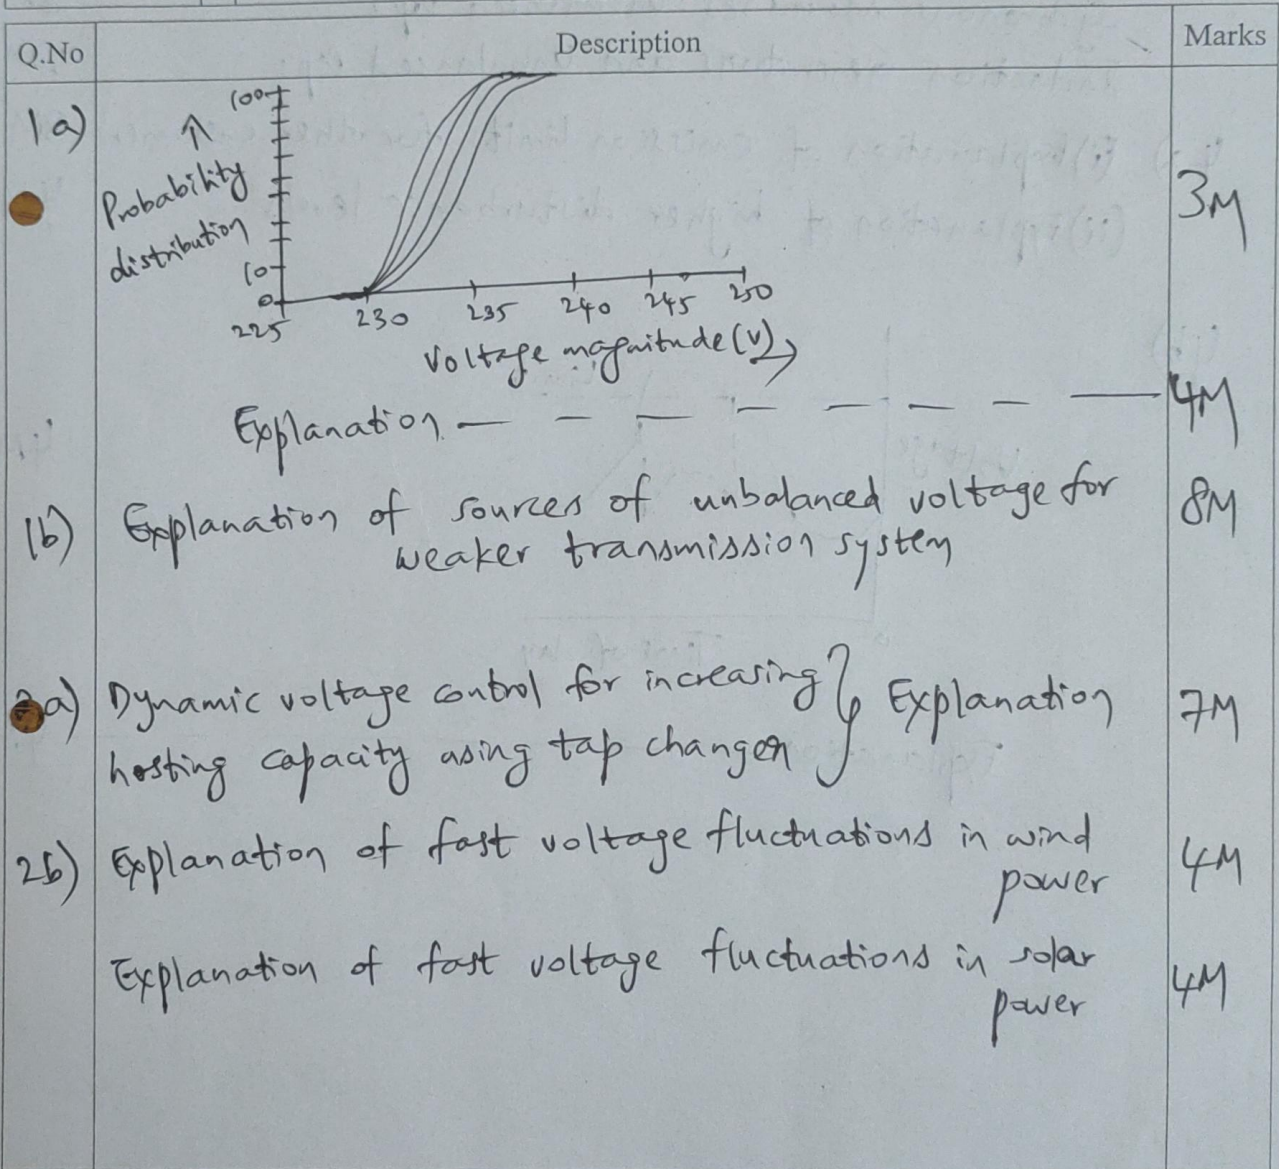 Q.No Description Marks
1a)
100
↑
Probability
distribution
10
0
225 230 235 240 245 250
Voltage magnitude (V) →
3M
Explanation — — — — — — — — 4M
1b) Explanation of sources of unbalanced voltage for 8M
weaker transmission system
2a) Dynamic voltage control for increasing } Explanation 7M
hosting capacity using tap changer
2b) Explanation of fast voltage fluctuations in wind 4M
power
Explanation of fast voltage fluctuations in solar 4M
power